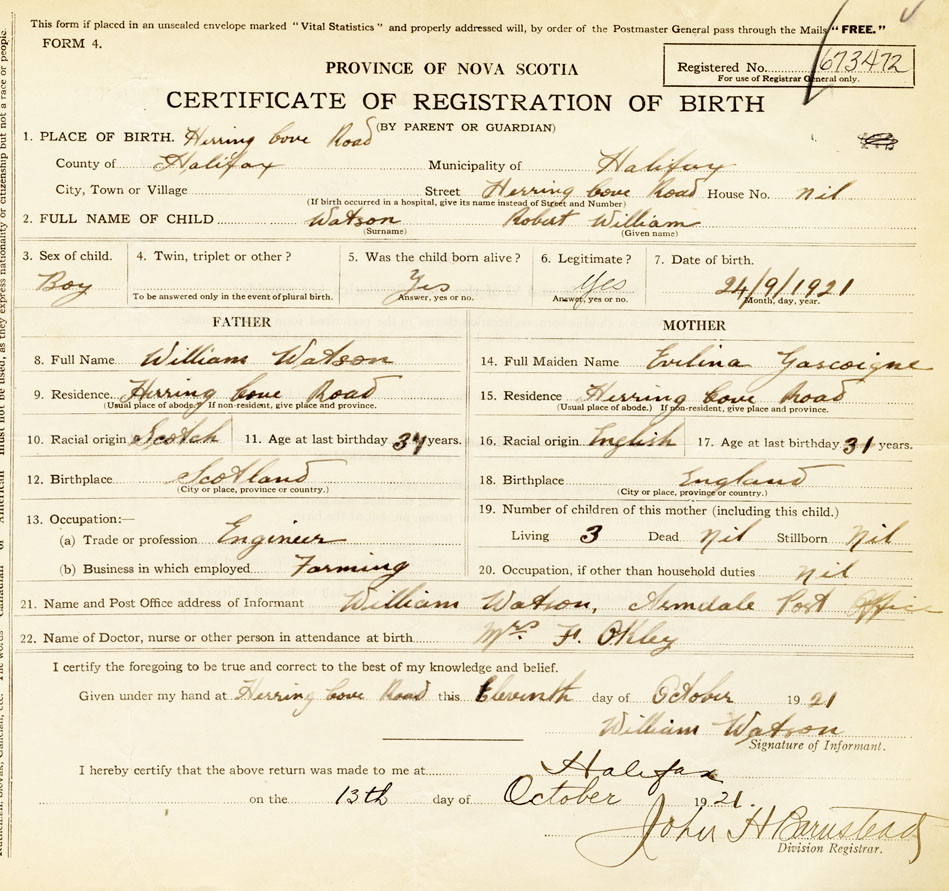 This form if placed in an unsealed envelope marked "Vital Statistics" and properly addressed will, by order of the Postmaster General pass through the Mails "FREE."
FORM 4.
Registered No. 673472
For use of Registrar General only.
PROVINCE OF NOVA SCOTIA
CERTIFICATE OF REGISTRATION OF BIRTH
(BY PARENT OR GUARDIAN)
1. PLACE OF BIRTH. Herring Cove Road
County of Halifax Municipality of Halifax
City, Town or Village Street Herring Cove Road House No. Nil
(If birth occurred in a hospital, give its name instead of Street and Number)
2. FULL NAME OF CHILD Watson Robert William
(Surname) (Given name)
3. Sex of child. 4. Twin, triplet or other? 5. Was the child born alive? 6. Legitimate? 7. Date of birth.
Boy Yes Yes 24/9/1921
To be answered only in the event of plural birth. Answer, yes or no. Answer, yes or no. Month, day, year.
FATHER
8. Full Name William Watson
9. Residence. Herring Cove Road
(Usual place of abode.) If non-resident, give place and province.
10. Racial origin Scotch 11. Age at last birthday years.
12. Birthplace Scotland
(City or place, province or country.)
13. Occupation:—
(a) Trade or profession Engineer
(b) Business in which employed Farming
MOTHER
14. Full Maiden Name Evelina Gascoigne
15. Residence Herring Cove Road
(Usual place of abode.) If non-resident, give place and province.
16. Racial origin English 17. Age at last birthday 31 years.
18. Birthplace England
(City or place, province or country.)
19. Number of children of this mother (including this child.)
Living 3 Dead Nil Stillborn Nil
20. Occupation, if other than household duties Nil
21. Name and Post Office address of Informant William Watson, Armdale Post Office
22. Name of Doctor, nurse or other person in attendance at birth Mrs F. Okley
I certify the foregoing to be true and correct to the best of my knowledge and belief.
Given under my hand at Herring Cove Road this Eleventh day of October 1921
William Watson
Signature of Informant.
I hereby certify that the above return was made to me at Halifax
on the 13th day of October 1921.
John H Barnstead
Division Registrar.